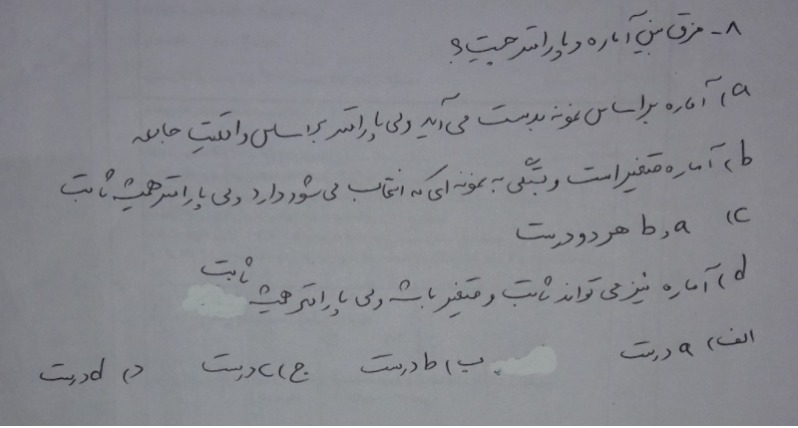 ۸- فرق بین آماره و پارامتر چیست؟
a) آماره براساس نمونه بدست می آید ولی پارامتر براساس واقعیت جامعه
b) آماره متغیر است و بستگی به نمونه ای که انتخاب می شود دارد ولی پارامتر همیشه ثابت
c) a و b هر دو درست
d) آماره نیز می تواند ثابت و متغیر باشد ولی پارامتر همیشه ثابت
الف) a درست ب) b درست ج) c درست د) d درست